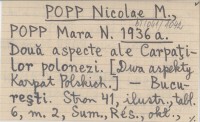 POPP Nicolae M.,
POPP Mara N. 1936 a.
Două aspecte ale Carpaţi-
lor polonezi. [Dwa aspekty
Karpat Polskich.] — Bucu-
reşti. Stron 41, ilustr., tabl.
6, m. 2, Sum., Rés., okł.,